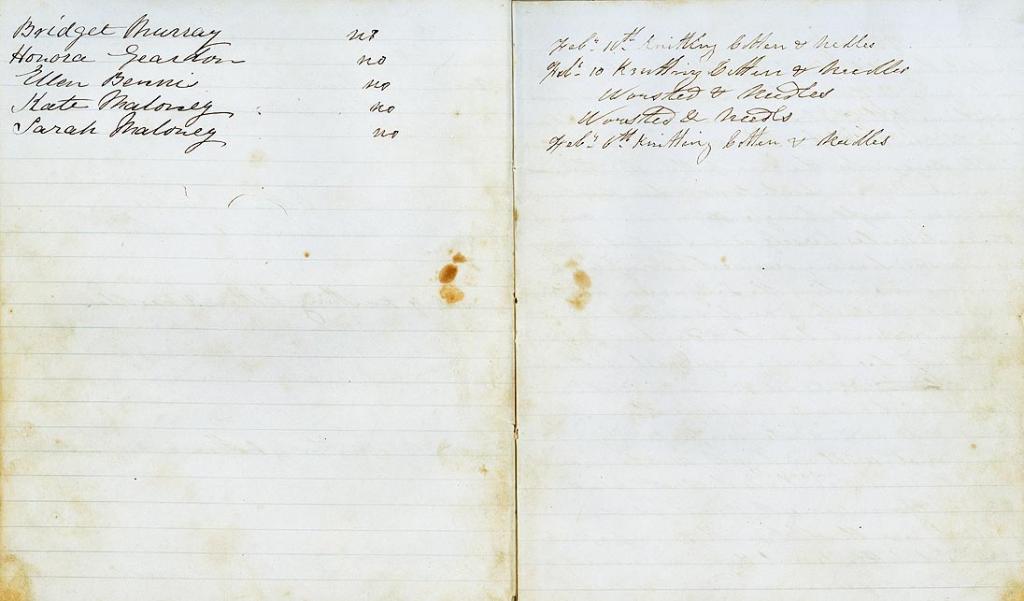 Bridget Murray no
Honora Gearon no
Ellen Bennis no
Kate Maloney no
Sarah Maloney no
Feby 10th Knitting Cotten & Needles
Feby 10 Knitting Cotten & Needles
Worsted & Needles
Worsted & Needls
Feby 6th Knitting Cotten & Needles